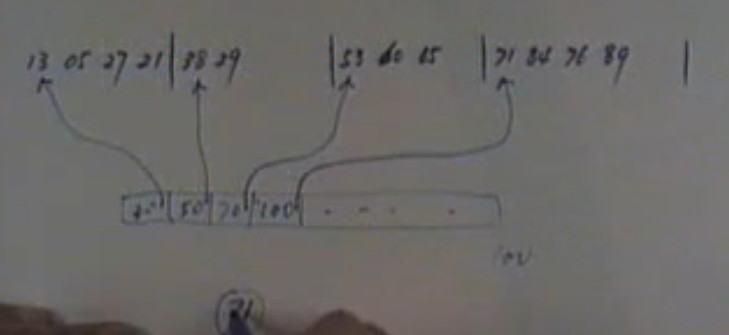 13 05 27 21 | 38 29 | 53 60 65 | 71 84 76 89 |
50 70 100 - - - -